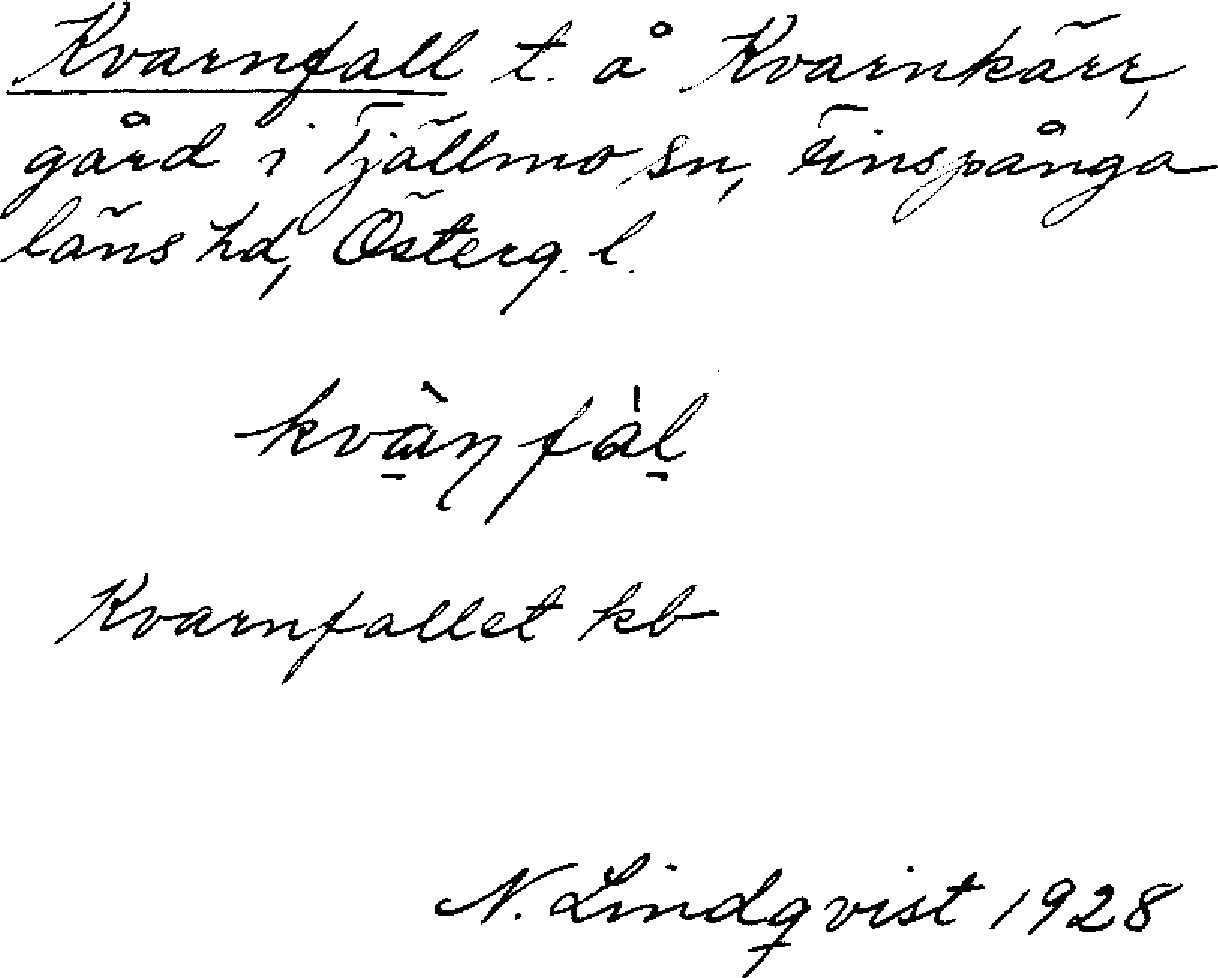 Kvarnfall t. å Kvarnkärr,
gård i Tjällmo sn, Finspånga
läns hd, Österg. l.
kvà̱ŋ fàḻ
Kvarnfallet kb
N. Lindqvist 1928